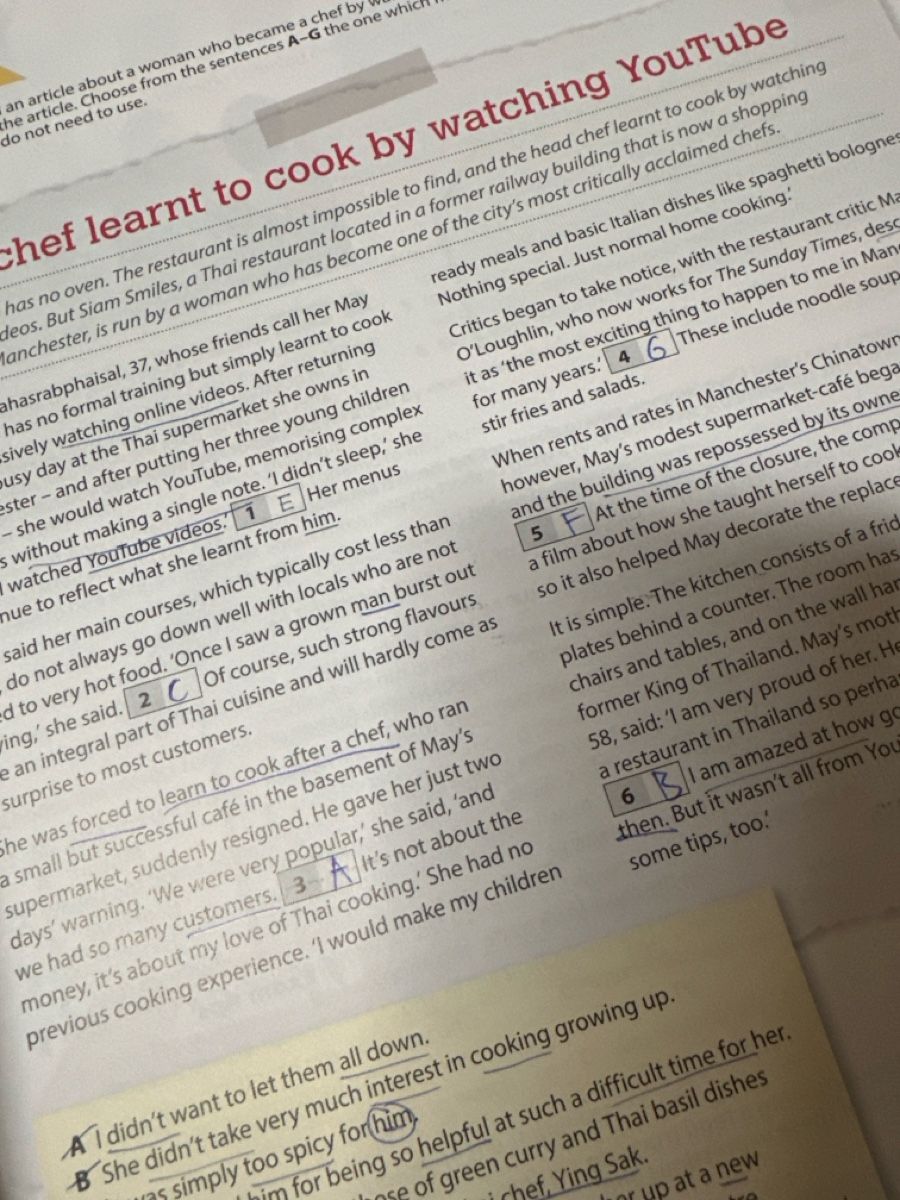 an article about a woman who became a chef by
the article. Choose from the sentences A–G the one which
do not need to use.
chef learnt to cook by watching YouTube
has no oven. The restaurant is almost impossible to find, and the head chef learnt to cook by watching
deos. But Siam Smiles, a Thai restaurant located in a former railway building that is now a shopping
Manchester, is run by a woman who has become one of the city's most critically acclaimed chefs.
ahasrabphaisal, 37, whose friends call her May
has no formal training but simply learnt to cook
sively watching online videos. After returning
busy day at the Thai supermarket she owns in
ester – and after putting her three young children
– she would watch YouTube, memorising complex
s without making a single note. 'I didn't sleep,' she
I watched YouTube videos.' 1 E Her menus
nue to reflect what she learnt from him.
said her main courses, which typically cost less than
, do not always go down well with locals who are not
ed to very hot food. 'Once I saw a grown man burst out
ying,' she said. 2 C Of course, such strong flavours
e an integral part of Thai cuisine and will hardly come as
surprise to most customers.
She was forced to learn to cook after a chef, who ran
a small but successful café in the basement of May's
supermarket, suddenly resigned. He gave her just two
days' warning. 'We were very popular,' she said, 'and
we had so many customers. 3 A It's not about the
money, it's about my love of Thai cooking.' She had no
previous cooking experience. 'I would make my children
ready meals and basic Italian dishes like spaghetti bolognes
Nothing special. Just normal home cooking.'
Critics began to take notice, with the restaurant critic Ma
O'Loughlin, who now works for The Sunday Times, desc
it as 'the most exciting thing to happen to me in Man
for many years.' 4 G These include noodle soup
stir fries and salads.
When rents and rates in Manchester's Chinatown
however, May's modest supermarket-café bega
and the building was repossessed by its owne
5 F At the time of the closure, the comp
a film about how she taught herself to cook
so it also helped May decorate the replace
It is simple. The kitchen consists of a frid
plates behind a counter. The room has
chairs and tables, and on the wall han
former King of Thailand. May's moth
58, said: 'I am very proud of her. He
a restaurant in Thailand so perha
6 B I am amazed at how go
then. But it wasn't all from You
some tips, too.'
A I didn't want to let them all down.
B She didn't take very much interest in cooking growing up.
was simply too spicy for him.
him for being so helpful at such a difficult time for her.
hose of green curry and Thai basil dishes
chef, Ying Sak.
up at a new